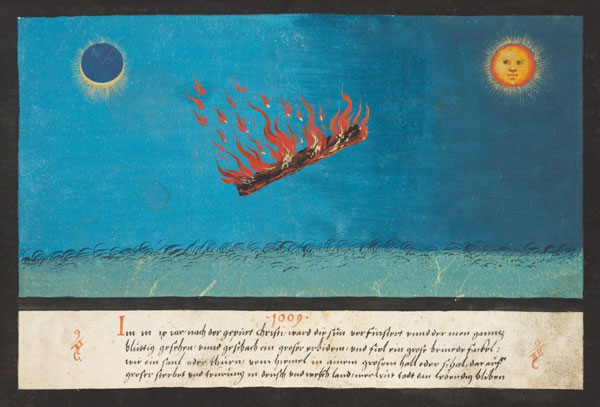 ·1009·
Im m ix iar nach der gepürt Christi ward die sün verfinstert vnnd der mon ganntz
blüttig gesehen vnnd geschach ein groser erbidem vnnd fiel ein grose brinende fackel:
wie ein saul oder thürn vom himel in ainem grosem hall oder schal, darauff
groser sterbet vnd teurung in deutsch vnd welsch land mer leut todt am lebendig bliben